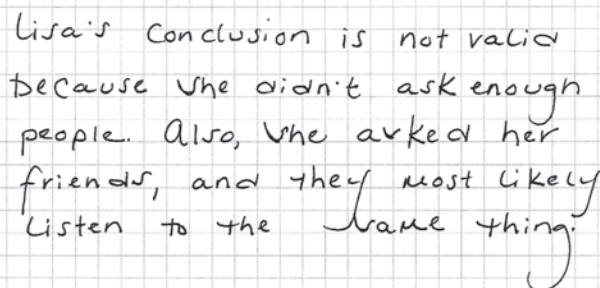 Lisa's conclusion is not valid
because she didn't ask enough
people. Also, she asked her
friends, and they most likely
Listen to the same thing.